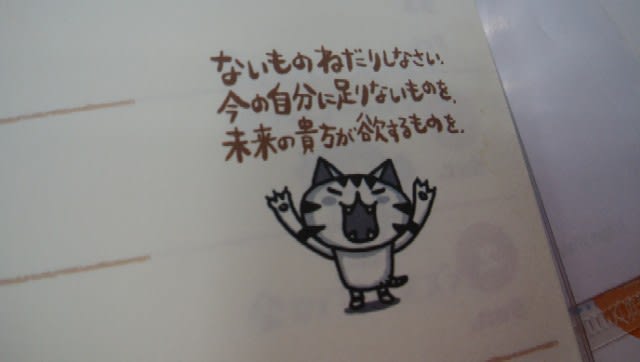 ないものねだりしなさい、
今の自分に足りないものを、
未来の貴方が欲するものを。